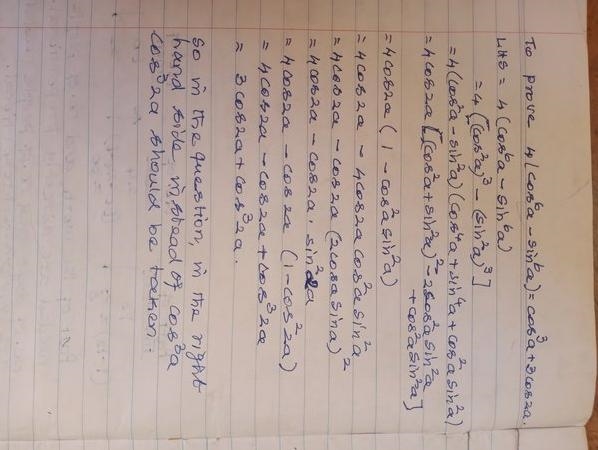 To prove 4(cos⁶a - sin⁶a) = cos³a + 3cos2a.
LHS = 4(cos⁶a - sin⁶a)
= 4[(cos²a)³ - (sin²a)³]
= 4(cos²a - sin²a)(cos⁴a + sin⁴a + cos²a sin²a)
= 4cos2a[(cos²a + sin²a)² - 2cos²a sin²a
+ cos²a sin²a]
= 4cos2a(1 - cos²a sin²a)
= 4cos2a - 4cos2a cos²a sin²a
= 4cos2a - cos2a(2cosa sina)²
= 4cos2a - cos2a. sin²2a
= 4cos2a - cos2a (1 - cos²2a)
= 4cos2a - cos2a + cos³2a
= 3cos2a + cos³2a.
So in the question, in the right
hand side, instead of cos³a
cos³2a should be taken.